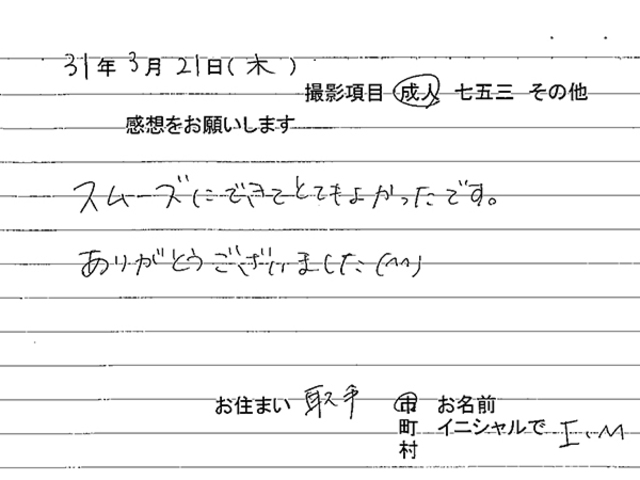 31年3月21日(木)
撮影項目 成人 七五三 その他
感想をお願いします
スムーズにできてとてもよかったです。
ありがとうございました(^^)
お住まい 取手 市 お名前
町 イニシャルで I.M
村